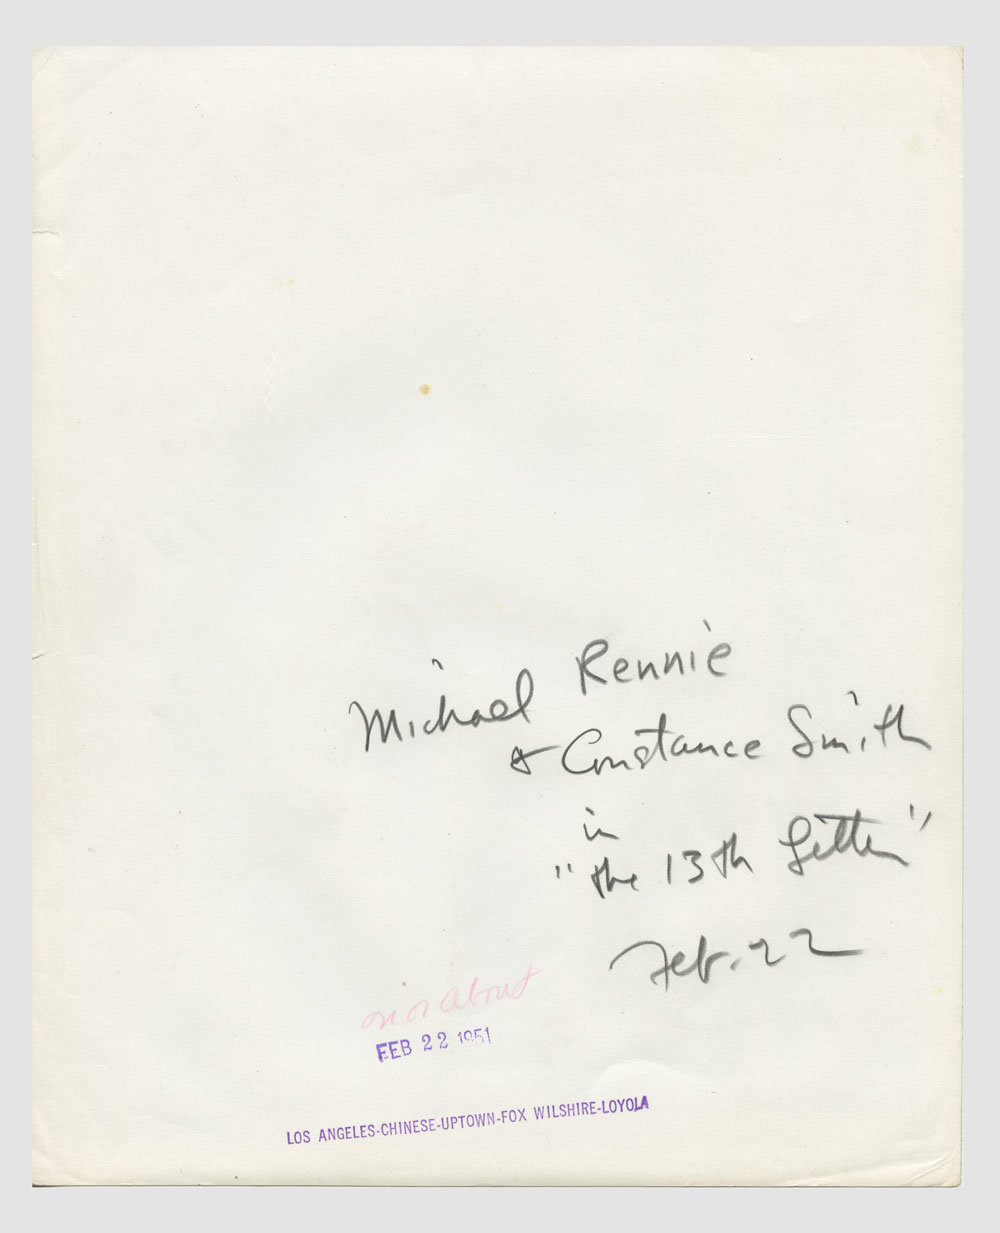 Michael Rennie
& Constance Smith
in
"the 13th Letter"
Feb. 22
on or about
FEB 22 1951
LOS ANGELES-CHINESE-UPTOWN-FOX WILSHIRE-LOYOLA